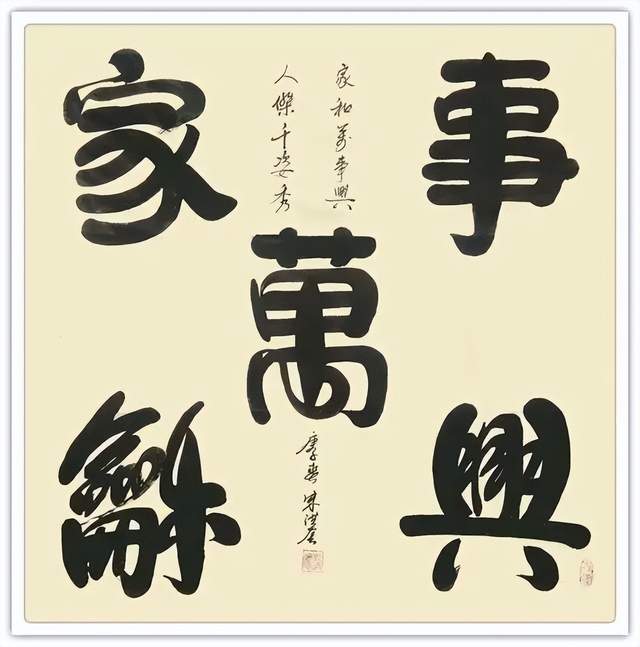 家龢
萬
事興
家和萬事興
人傑千姿秀